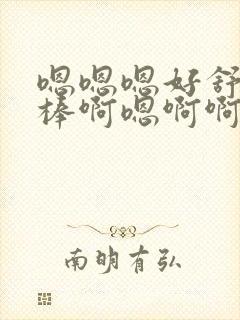 嗯嗯嗯好舒
棒啊嗯啊啊
南明有弘